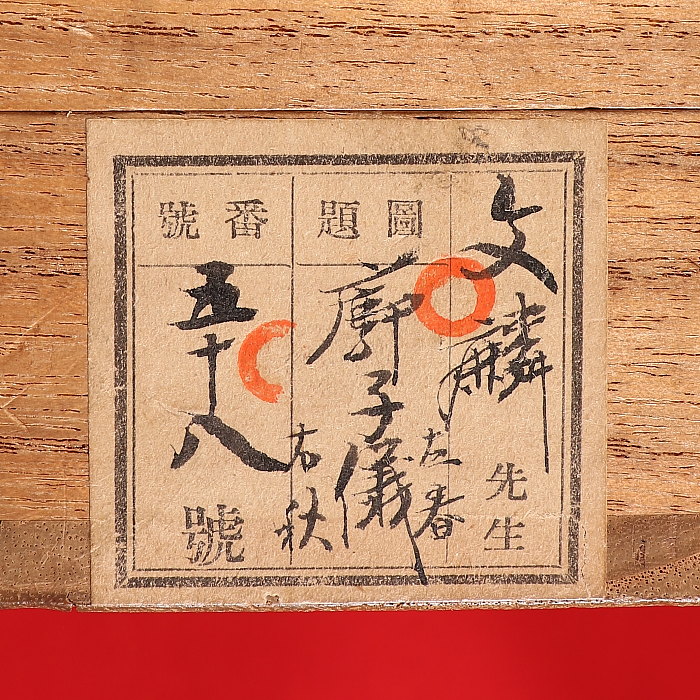 文麟先生
圖題
廓子儀
左春
右秋
番號
五十八號